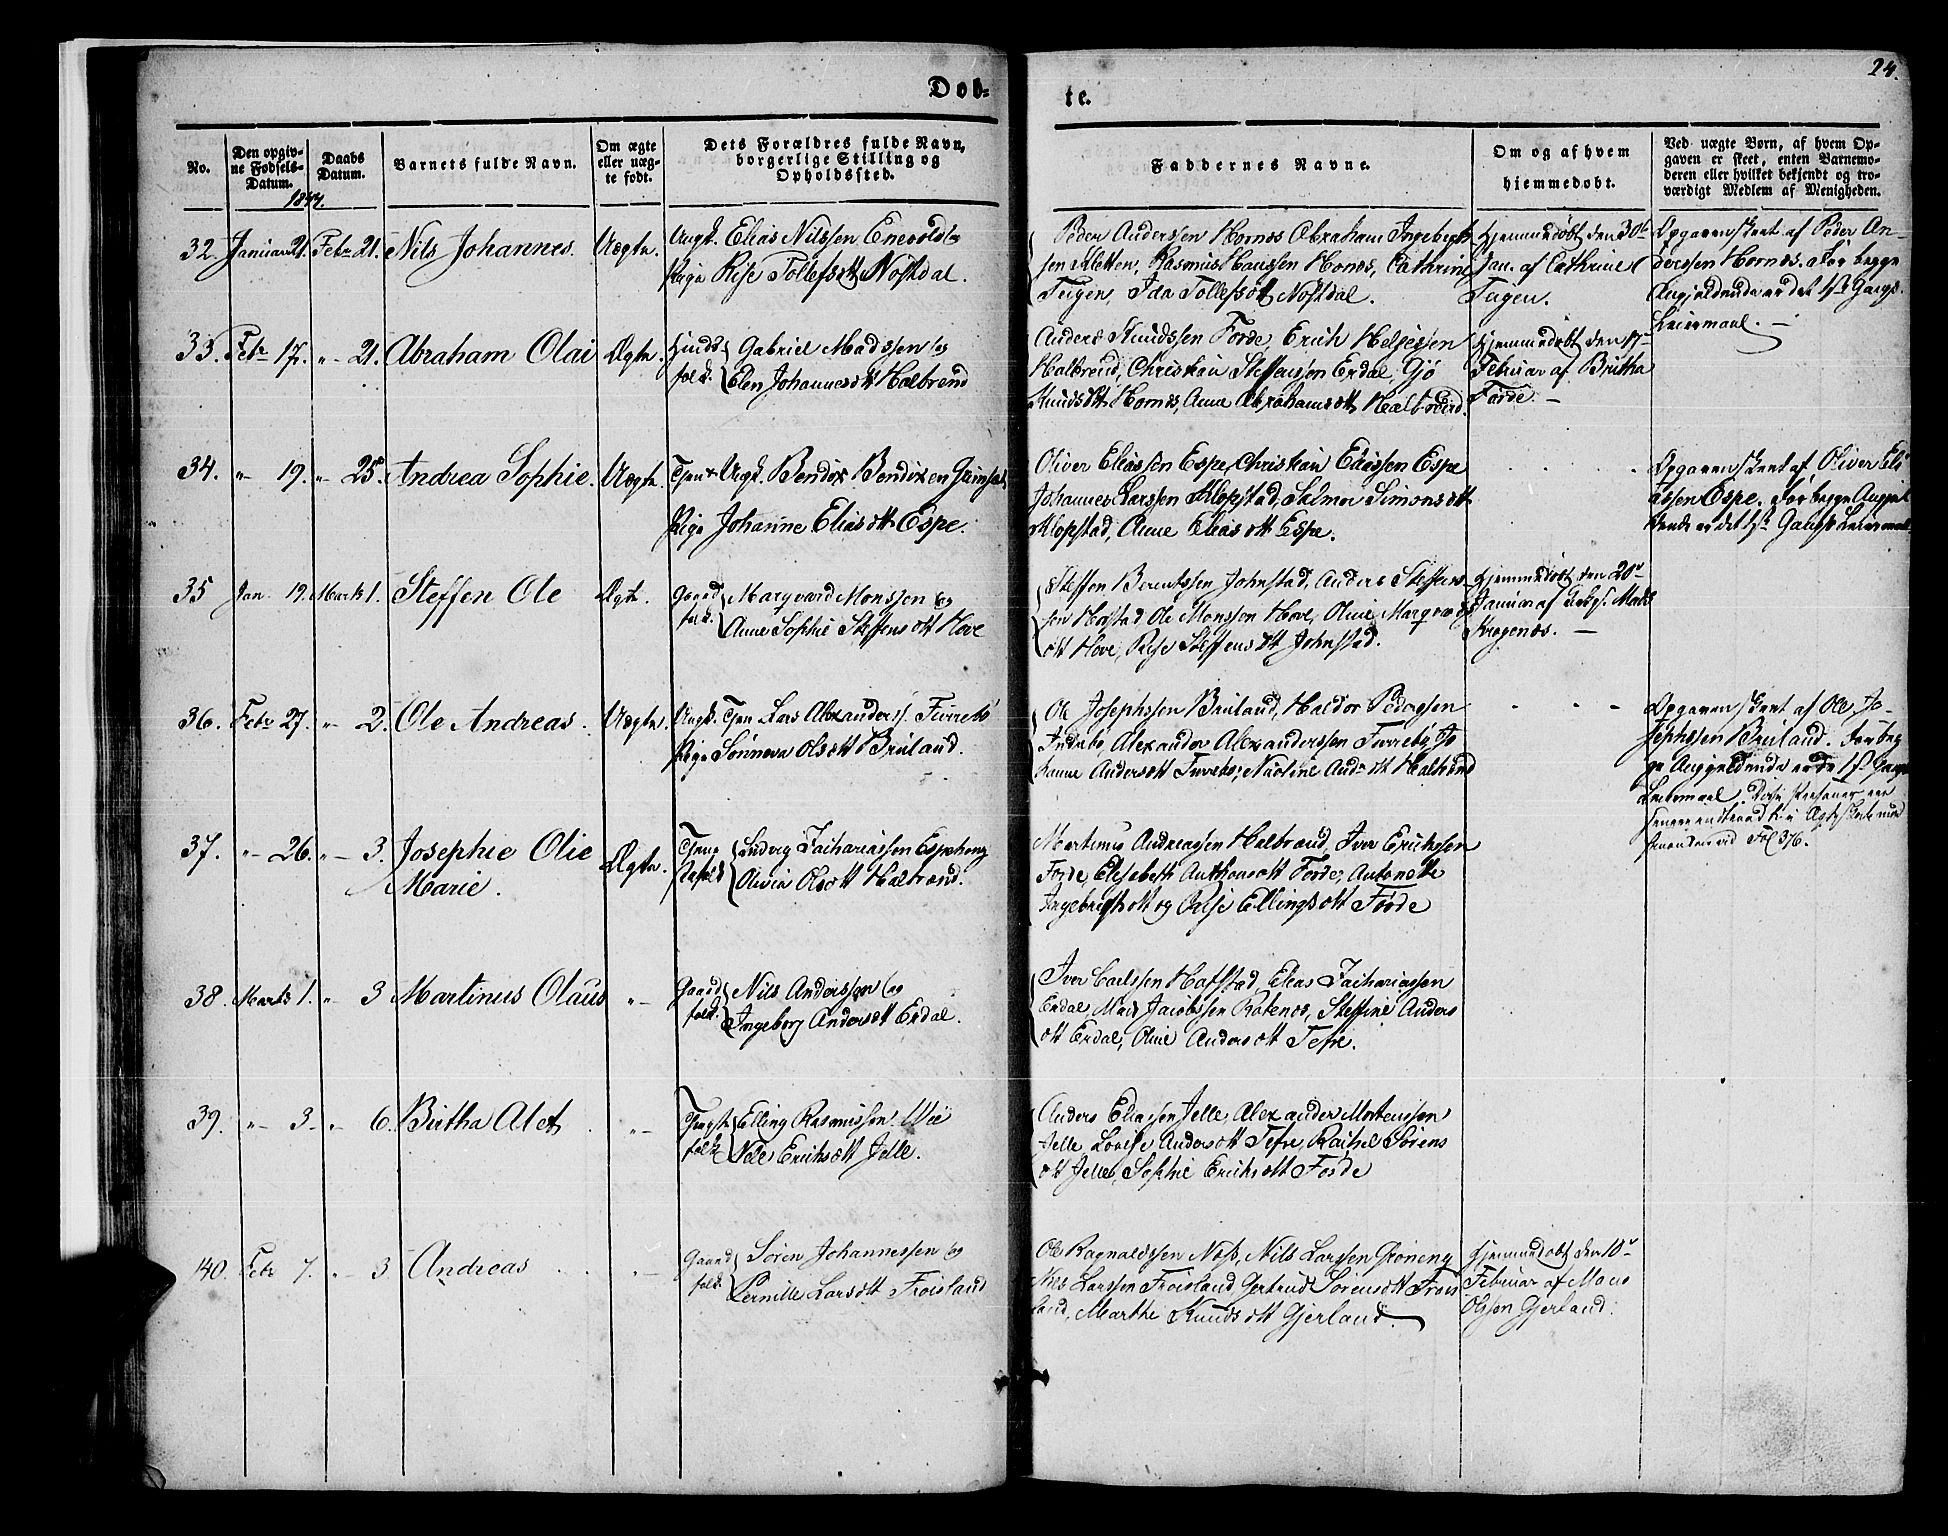 24.
Døb-
te.
No.
Den opgiv-
ne Fødsels-
Datum.
Daabs
Datum.
1844.
Barnets fulde Navn.
Om ægte
eller uæg-
te født.
Dets Forældres fulde Navn,
borgerlige Stilling og
Opholdssted.
Faddernes Navne.
Om og af hvem
hjemmedøbt.
Ved uægte Børn, af hvem Op-
gaven er skeet, enten Barnemo-
deren eller hvilket bekjendt og tro-
værdigt Medlem af Menigheden.
32. Januar 21. Febr 21. Nils Johannes. Uægte. Ungk. Elias Nilssen Enevold og
Pige Rise Tollefsdtt Nostdal.
Peder Anderssen Hornes Abraham Ingebrigt
sen Sletten, Rasmus Hanssen Hornes, Cathrine
Teigen, Ida Tollefsdtt Nostdal.
Hjemmedøbt den 30te
Jan. af Cathrine
Teigen.
Opgaven skeet af Peder An-
derssen Hornes. For begge
Angjeldende er det 1ste Gangs
Leiermaal.
33. Febr 17. „ 21. Abraham Olai Ægte. Huus
folk. Gabriel Madssen og
Elen Johannesdtt Halbrend
Anders Knudssen Førde, Erich Helgessen
Halbrend, Christian Steffenssen Erdal, Gjø
Knudsdtt Hornes, Anne Abrahamsdtt Halbrend.
Hjemmedøbt den 17
Februar af Brithe
Førde. —
34. „ 19. „ 25. Andrea Sophie. Uægte. Tjen. Ungk. Bendix Bendixen
Pige Johanne Eliasdtt Espe.
Oliver Eliassen Espe, Christian Eliassen Espe
Johannes Larssen Klopstad, Salmer Simonsdtt
Klopstad, Anne Eliasdtt Espe.
Opgaven skeet af Oliver Eli
assen Espe. For begge Angjel
dende er det 1ste Gangs Leiermaal
35 Jan. 19. Marts 1. Steffen Ole Ægte. Gaard
folk. Marqvard Monssen og
Anne Sophie Steffensdtt Hove
Steffen Berentssen Johnstad, Anders Steffens
sen Hafstad Ole Monssen Hove, Oline Marqvards
dtt Hove, Rise Steffensdtt Johnstad.
Hjemmedøbt den 20de
Januar af Mads
Kragenæs. —
36. Febr 27. „ 2. Ole Andreas. Uægte. Ungk. Tjen Lars Alexanders. Furrebø
Pige Sønneva Olsdtt Bruland.
Ole Josephssen Bruland, Haldor Pederssen
Indrebø, Alexander Alexanderssen Furrebø, Jo
hanne Andersdtt Furrebø, Nicoline And. dtt Halbrend
Opgaven skeet af Ole Jo-
sephssen Bruland. For beg
ge Angjeldende er det 1ste Gangs
Leiermaal. Disse Personer ere
senere indtraadt i Ægteskab med
hinanden vid Fol 376.
37. „ 26. „ 3. Josephie Olie
Marie. Ægte. Tjene
stefolk Ludvig Zachariassen Espehoug
Olivia Olsdtt Halbrend.
Martinus Andreassen Halbrend, Iver Erichssen
Førde, Elisabeth Anthonsdtt Førde, Antonette
Ingebrigtsdtt og Rise Ellingsdtt Førde
38. Marts 1. „ 3 Martinus Olaus „ Gaard
folk. Nils Anderssen og
Ingeborg Andersdtt Erdal.
Iver Carlssen Hafstad, Elias Zachariassen
Erdal, Mads Jacobssen Rotenes, Steffine Anders
dtt Erdal, Oline Andersdtt Tefre.
39. „ 3. „ 6. Brithe Alet „ Tjenst
folk Elling Rasmussen Vie
Nille Erichsdtt Jelle.
Anders Eliassen Jelle, Alexander Mortenssen
Jelle, Lovise Andersdtt Tefre, Rachel Sørens
dtt Jelle, Sophie Erichsdtt Førde
40. Febr 7. „ 3 Andreas „ Gaard
folk. Søren Johannessen og
Pernille Larsdtt Frøisland
Ole Ragnaldssen Nes, Nils Larssen Grøneng
Nils Larssen Frøisland, Gertrud Sørensdtt Frøis
land, Marthe Knudsdtt Gjerland.
Hjemmedøbt den 10de
Februar af Mons
Olssen Gjerland.